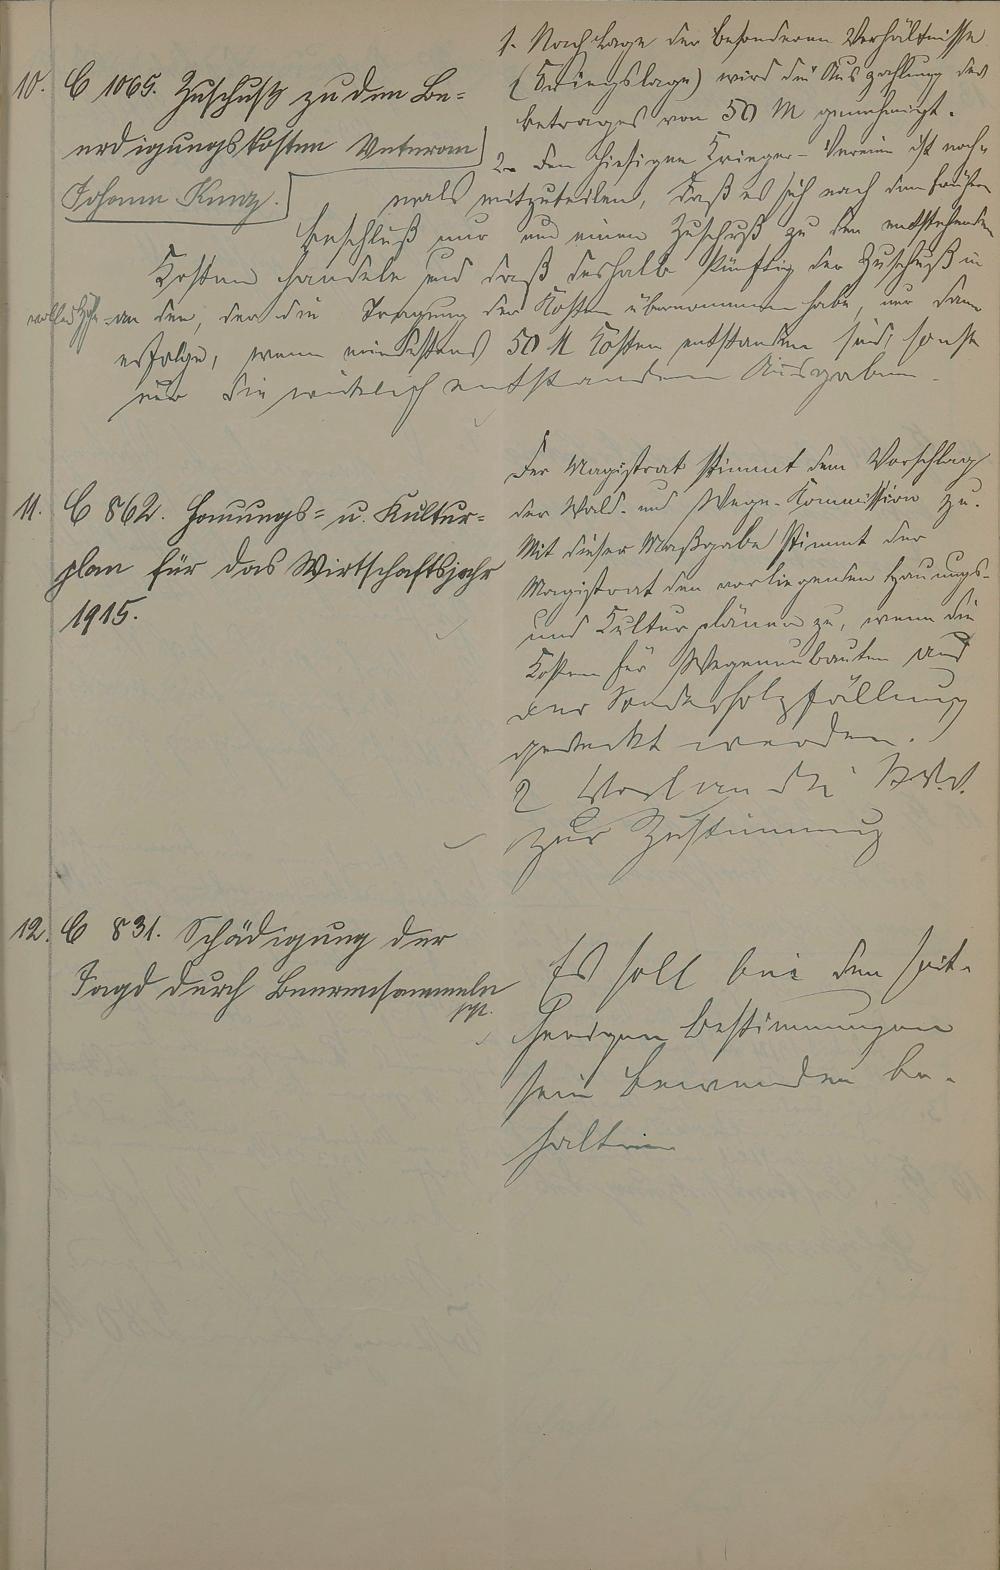 10. C 1065. Zuschuß zu den Be-
erdigungskosten Veteran
Johann Kunz.
1. Nach Lage der besonderen Verhältnisse
(Kriegslage) wird die Auszahlung des
Betrages von 50 M genehmigt.
2. Dem hiesigen Krieger-Verein ist noch-
mals mitzuteilen, daß es sich nach dem früheren
Beschluß nur um einen Zuschuß zu den entstehenden
Kosten handele und daß deshalb künftig der Zuschuß in
voller Höhe an den, der die Tragung der Kosten übernommen habe, nur dann
erfolge, wenn mindestens 50 M Kosten entstanden sind, sonst
nur die wirklich entstandenen Ausgaben.
11. C 862. Hauungs- u. Kultur-
plan für das Wirtschaftsjahr
1915.
Der Magistrat stimmt dem Vorschlag
der Wald- und Wege-Kommission zu.
Mit dieser Maßgabe stimmt der
Magistrat den vorliegenden Hauungs-
und Kulturplänen zu, wenn die
Kosten für Wegeneubauten aus
der Sonderholzfällung
gedeckt werden.
2 Vorl an die St.V.V.
zur Zustimmung
12. C 831. Schädigung der
Jagd durch Beerensammeln
pp.
Es soll bei den seit-
herigen Bestimmungen
sein Bewenden be-
halten